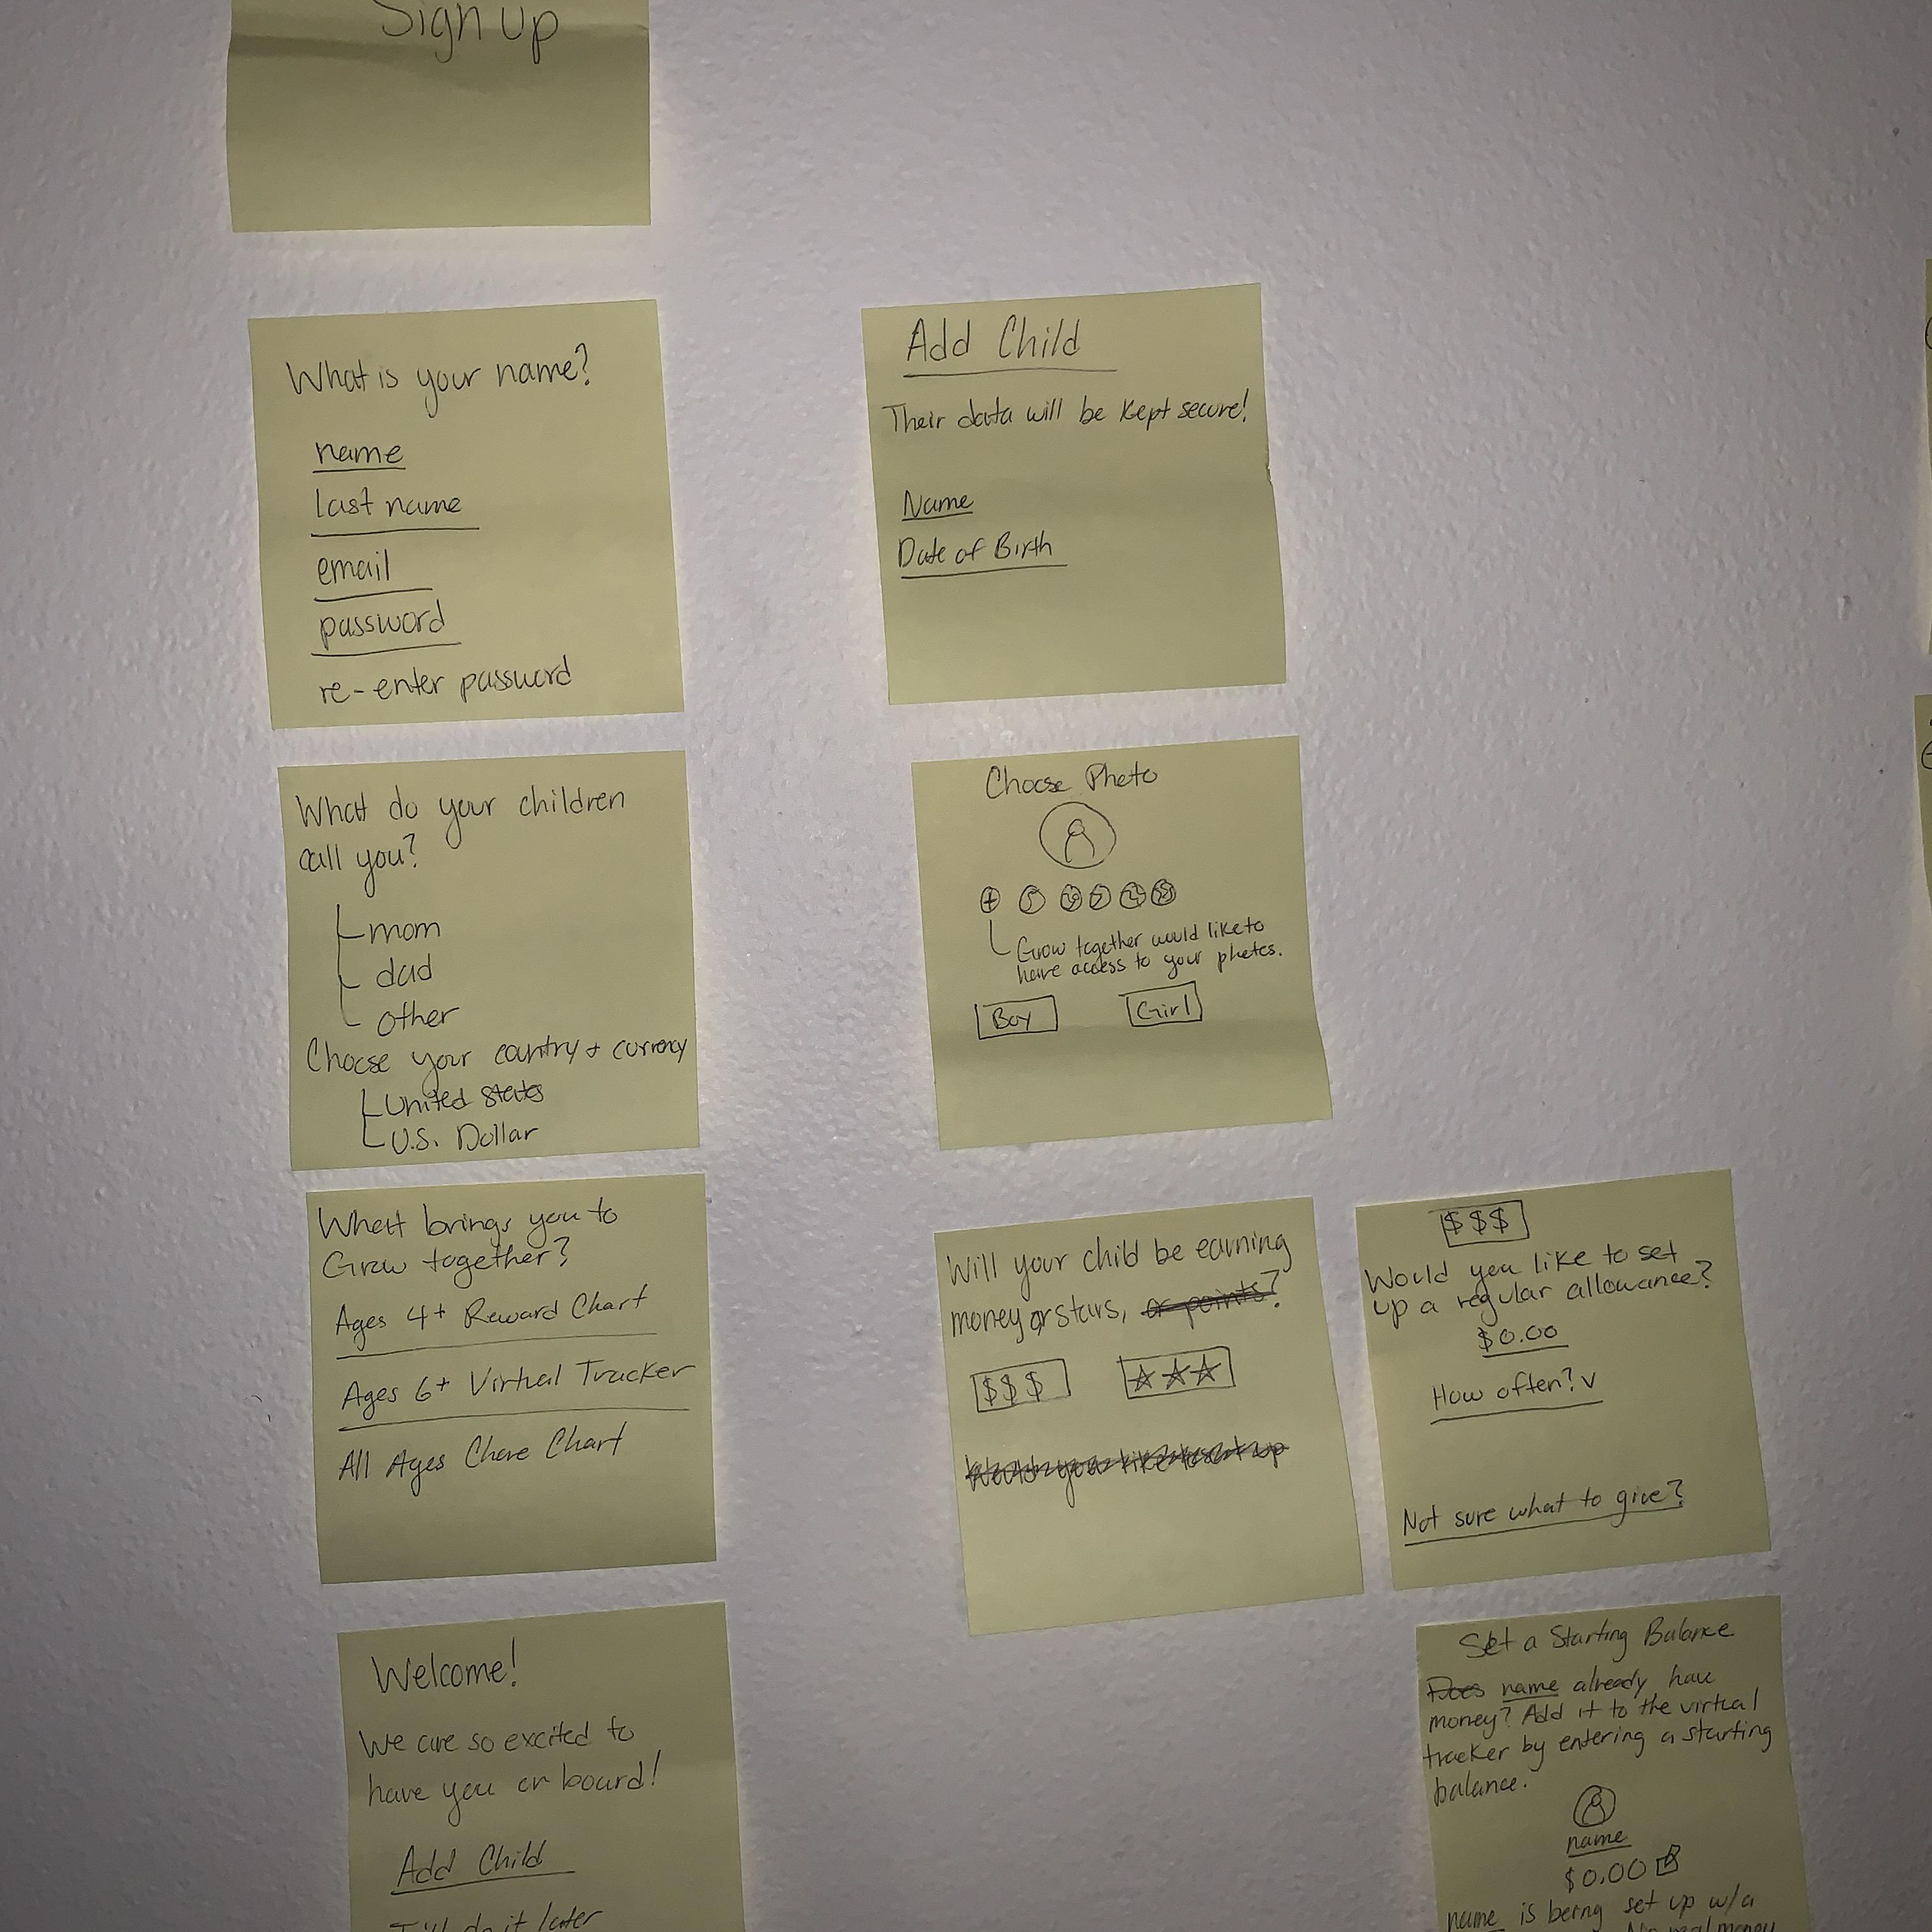 Sign up
What is your name?
name
last name
email
password
re-enter password
What do your children
call you?
mom
dad
other
Choose your country + currency
United States
U.S. Dollar
What brings you to
Grow together?
Ages 4+ Reward Chart
Ages 6+ Virtual Tracker
All Ages Chore Chart
Welcome!
We are so excited to
have you on board!
Add Child
I'll do it later
Add Child
Their data will be kept secure!
Name
Date of Birth
Choose Photo
Grow together would like to
have access to your photos.
Boy Girl
Will your child be earning
money or stars, or points?
$$$ ☆☆☆
Would you like to set up
$$$
Would you like to set
up a regular allowance?
$0.00
How often? v
Not sure what to give?
Set a Starting Balance
Does name already have
money? Add it to the virtual
tracker by entering a starting
balance.
name
$0.00
name is being set up w/a
No real money